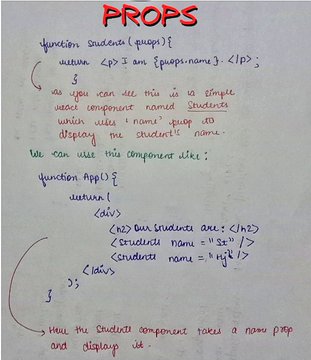 PROPS
function Students(props){
return <p> I am {props.name}. </p>;
}
As you can see this is a simple
react component named Students
which uses 'name' prop to
display the student's name.
We can use this component like:
function App() {
return (
<div>
<h2> Our Students are: </h2>
<Students name = "St" />
<Students name = "Hj" />
</div>
);
}
Here the Students component takes a name prop
and displays it.